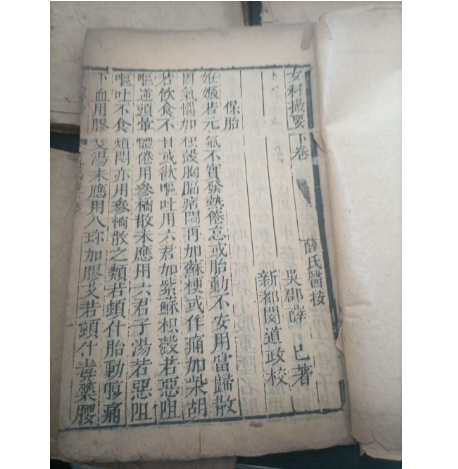 女科撮要下卷
薛氏醫按
吳郡薛 已著
新都閔道政校
保胎
妊娠若元氣不實發熱倦怠或胎動不安用當歸散
因氣惱加枳殼胸膈痞悶再加蘇梗或作痛加柴胡
若飲食不甘或欲嘔吐用六君加紫蘇枳殼若惡阻
嘔逆頭暈體倦用參橘散未應用六君子湯若惡阻
嘔吐不食煩悶亦用參橘散之類若頓仆胎動腹痛
下血用膠艾湯未應用八珍加膠艾若頓仆毒藥腰